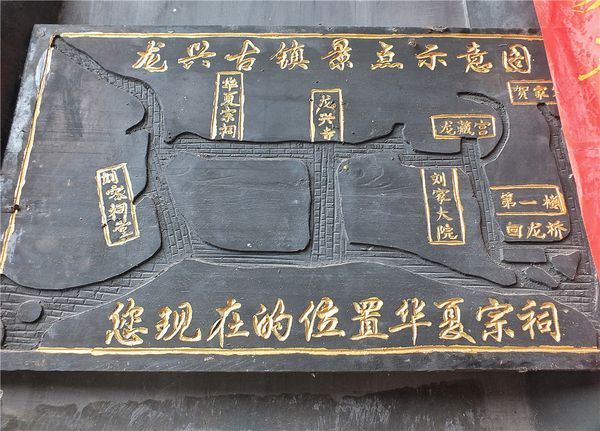 龙兴古镇景点示意图
华夏宗祠
龙兴寺
龙藏宫
贺家
刘家祠堂
刘家大院
第一楼
回龙桥
您现在的位置华夏宗祠